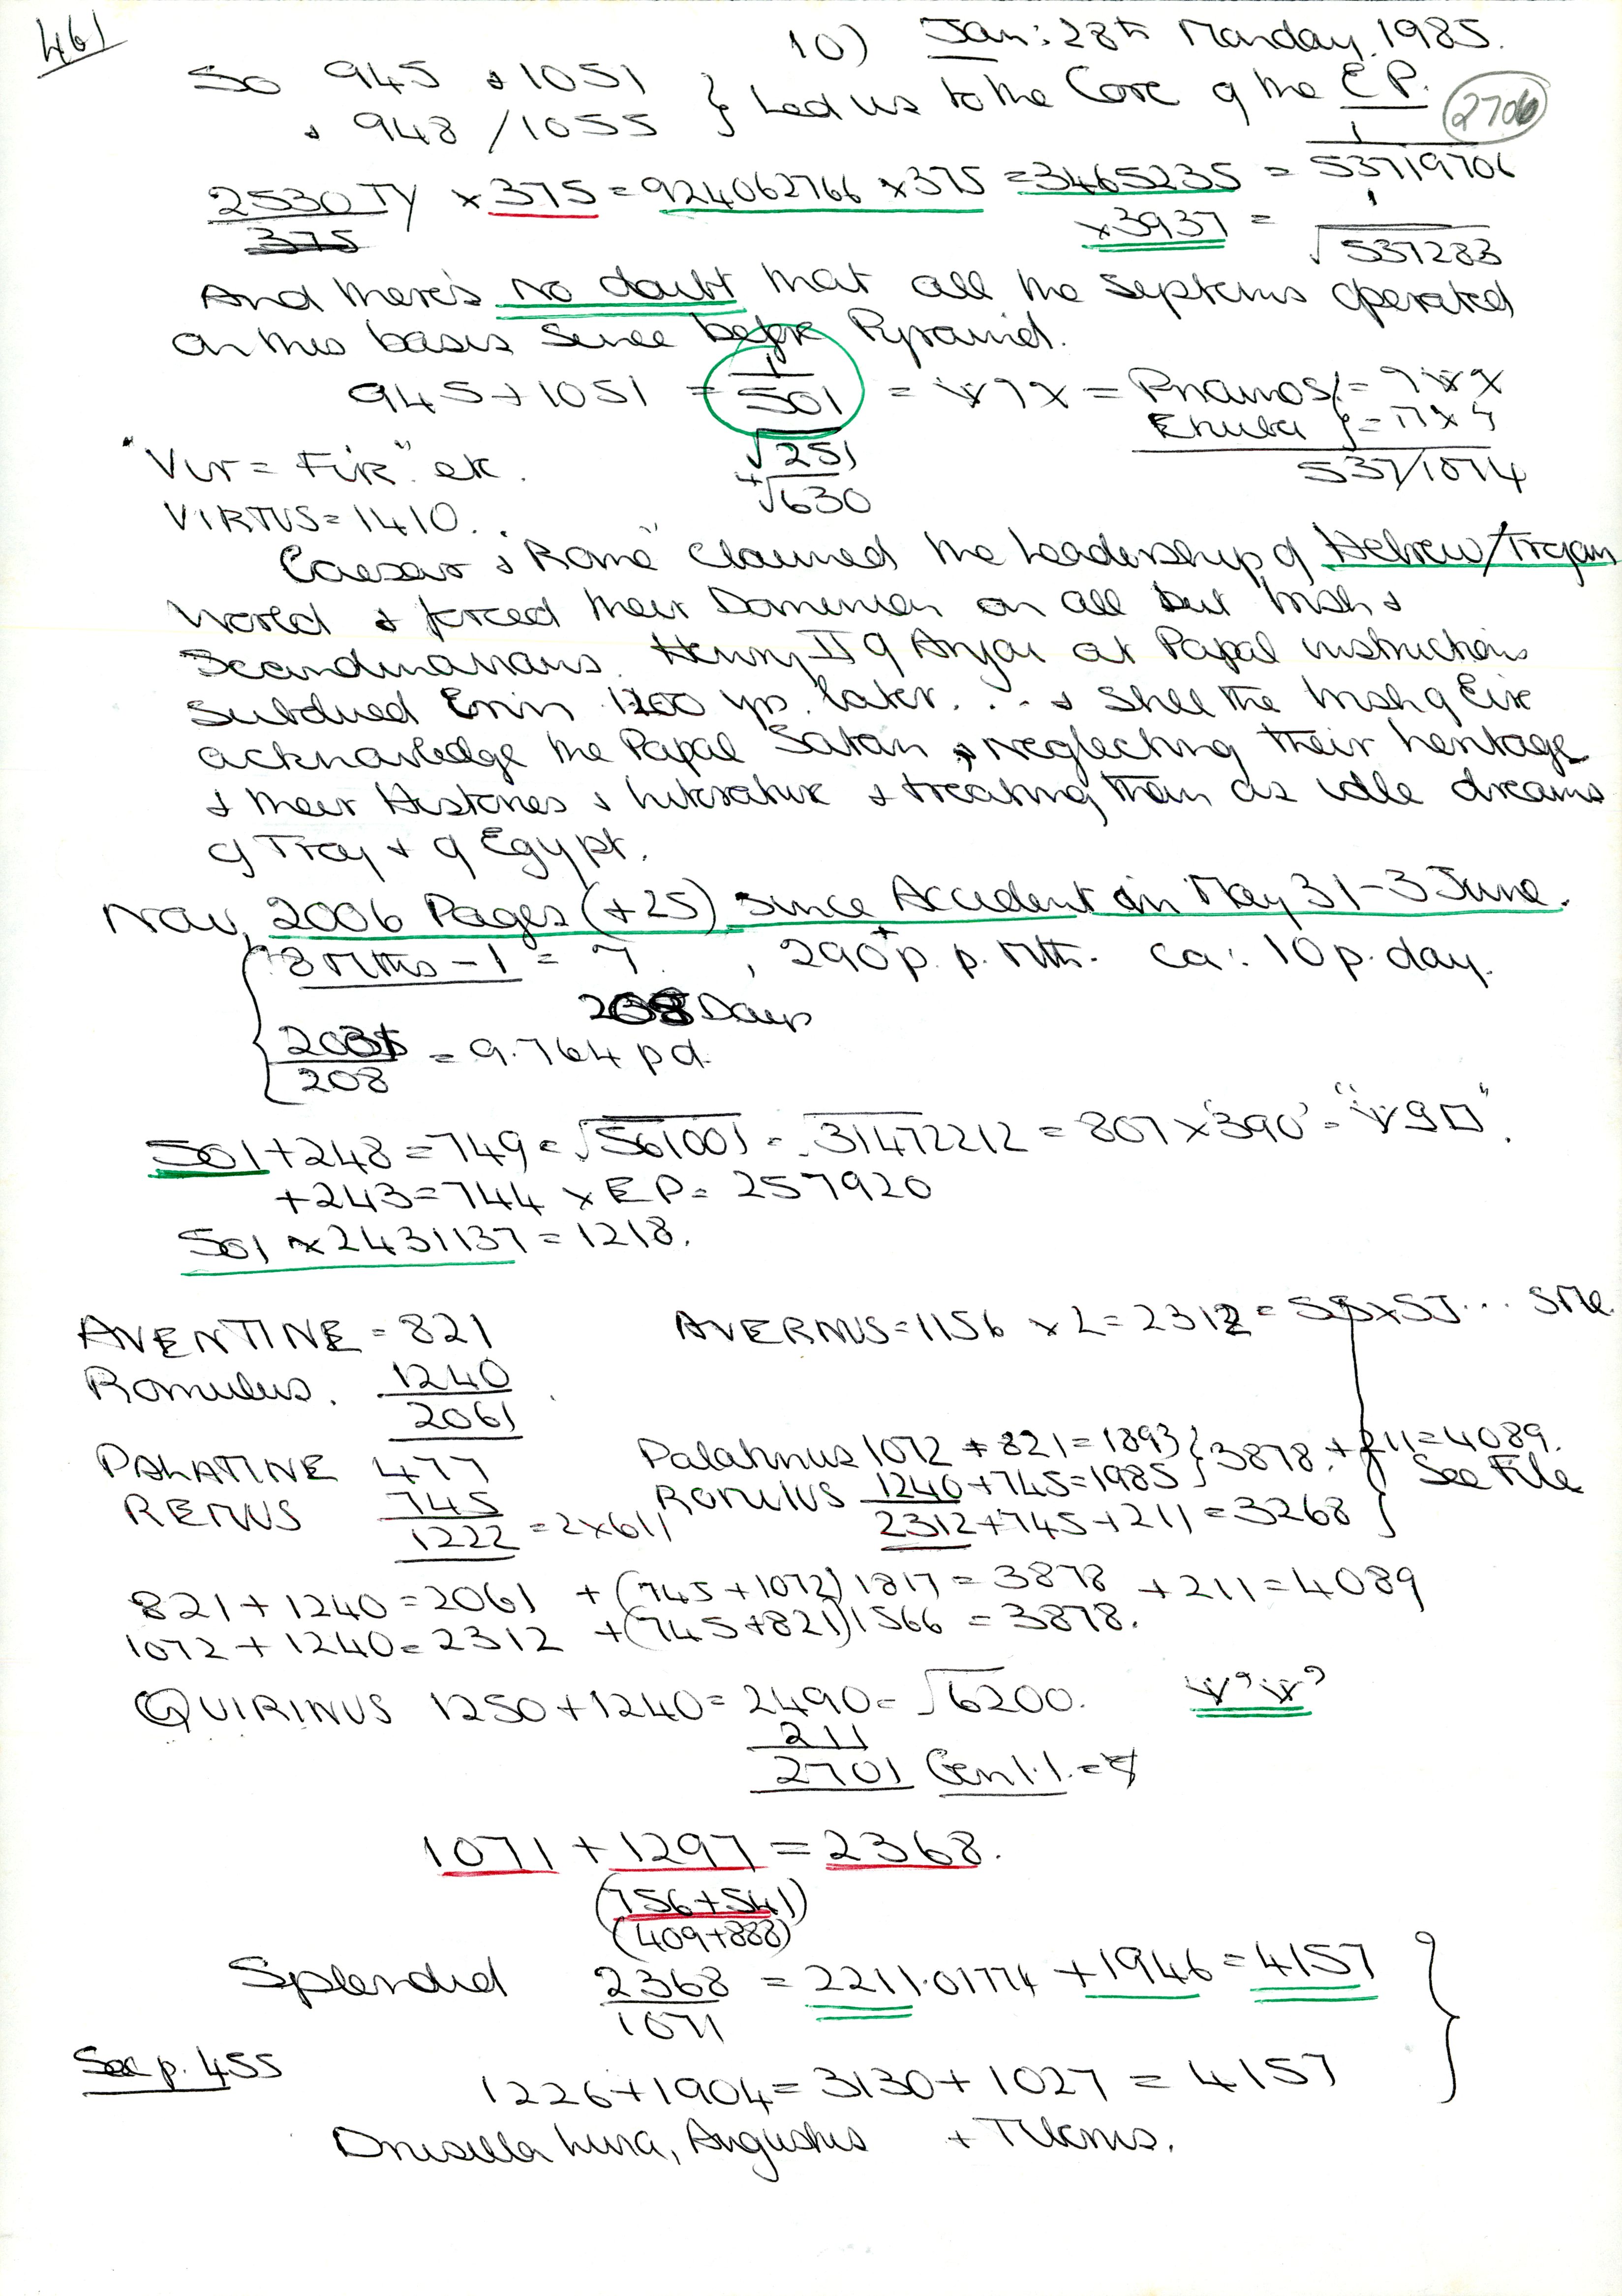 461
10) Jan: 28th Monday. 1985.
So 945 + 1051 } Led us to the Core of the E P.
+ 948 / 1055
2706
2530 TY × 375 = 924062766 × 375 = 3465235 = 1/53719706
375
×3937 = 1/√537283
And there's no doubt that all the Septems operated
on this basis since before Pyramid.
945 + 1051 = 1/501 = = Priamos
Ehuba
√251
4√630
537/1074
"Vir = Fir" etc.
VIRTUS = 1410.
Caesar + "Rome" claimed the Leadership of Hebrew/Trojan
World + forced their Dominion on all but Irish +
Scandinavians. Henry II of Anjou at Papal instructions
Subdued Erin 1200 yrs. later. . . + still the Irish of Eire
acknowledge the Papal Satan, neglecting their heritage
+ their Histories + Literature + treating them as idle dreams
of Troy + of Egypt.
Now, 2006 Pages (+25) since Accident in May 31-3 June.
8 Mths - 1 = 7. , 290+ p. p. Mth. ca: 10 p. day.
208 Days
2031/208 = 9.764 pd.
501 + 248 = 749 = √561001 = .31472212 = 807 × '390' =
+ 243 = 744 × E P = 257920
501 × 2431137 = 1218.
AVENTINE = 821
AVERNUS = 1156 × 2 = 2312 =
Romulus. 1240
2061
PALATINE 477
Palatinus 1072 + 821 = 1893 } 3878. + 211 = 4089.
REMUS 745
ROMULUS 1240 + 745 = 1985
See File
1222 = 2×611
2312 + 745 + 211 = 3268
821 + 1240 = 2061 + (745 + 1072) 1817 = 3878 + 211 = 4089
1072 + 1240 = 2312 + (745 + 821) 1566 = 3878.
QUIRINUS 1250 + 1240 = 2490 = √6200.
211
2701 Gen 1.1. =
1071 + 1297 = 2368.
(756 + 541)
(409 + 888)
Splendid 2368/1071 = 2211.01774 + 1946 = 4157
See p. 455
1226 + 1904 = 3130 + 1027 = 4157
Drusilla Livia, Augustus +